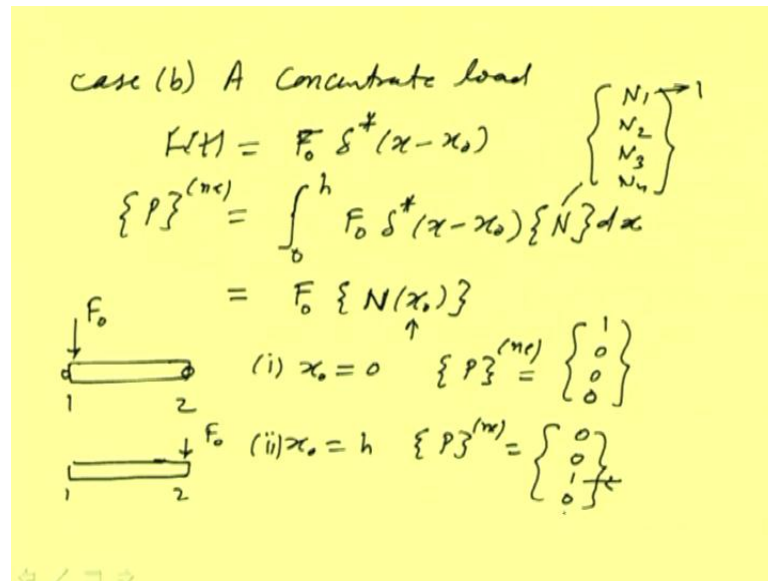 case (b) A Concentrate load
F(t) = F₀ δ*(x-x₀)
{ N₁ → 1
N₂
N₃
N₄ }
{P}^(ne) = ∫₀^h F₀ δ*(x-x₀){N}dx
= F₀ {N(x₀)}
↑
F₀
1 2
(i) x₀ = 0 {P}^(ne) = { 1
0
0
0 }
F₀
1 2
(ii) x₀ = h {P}^(ne) = { 0
0
1 ←
0 }